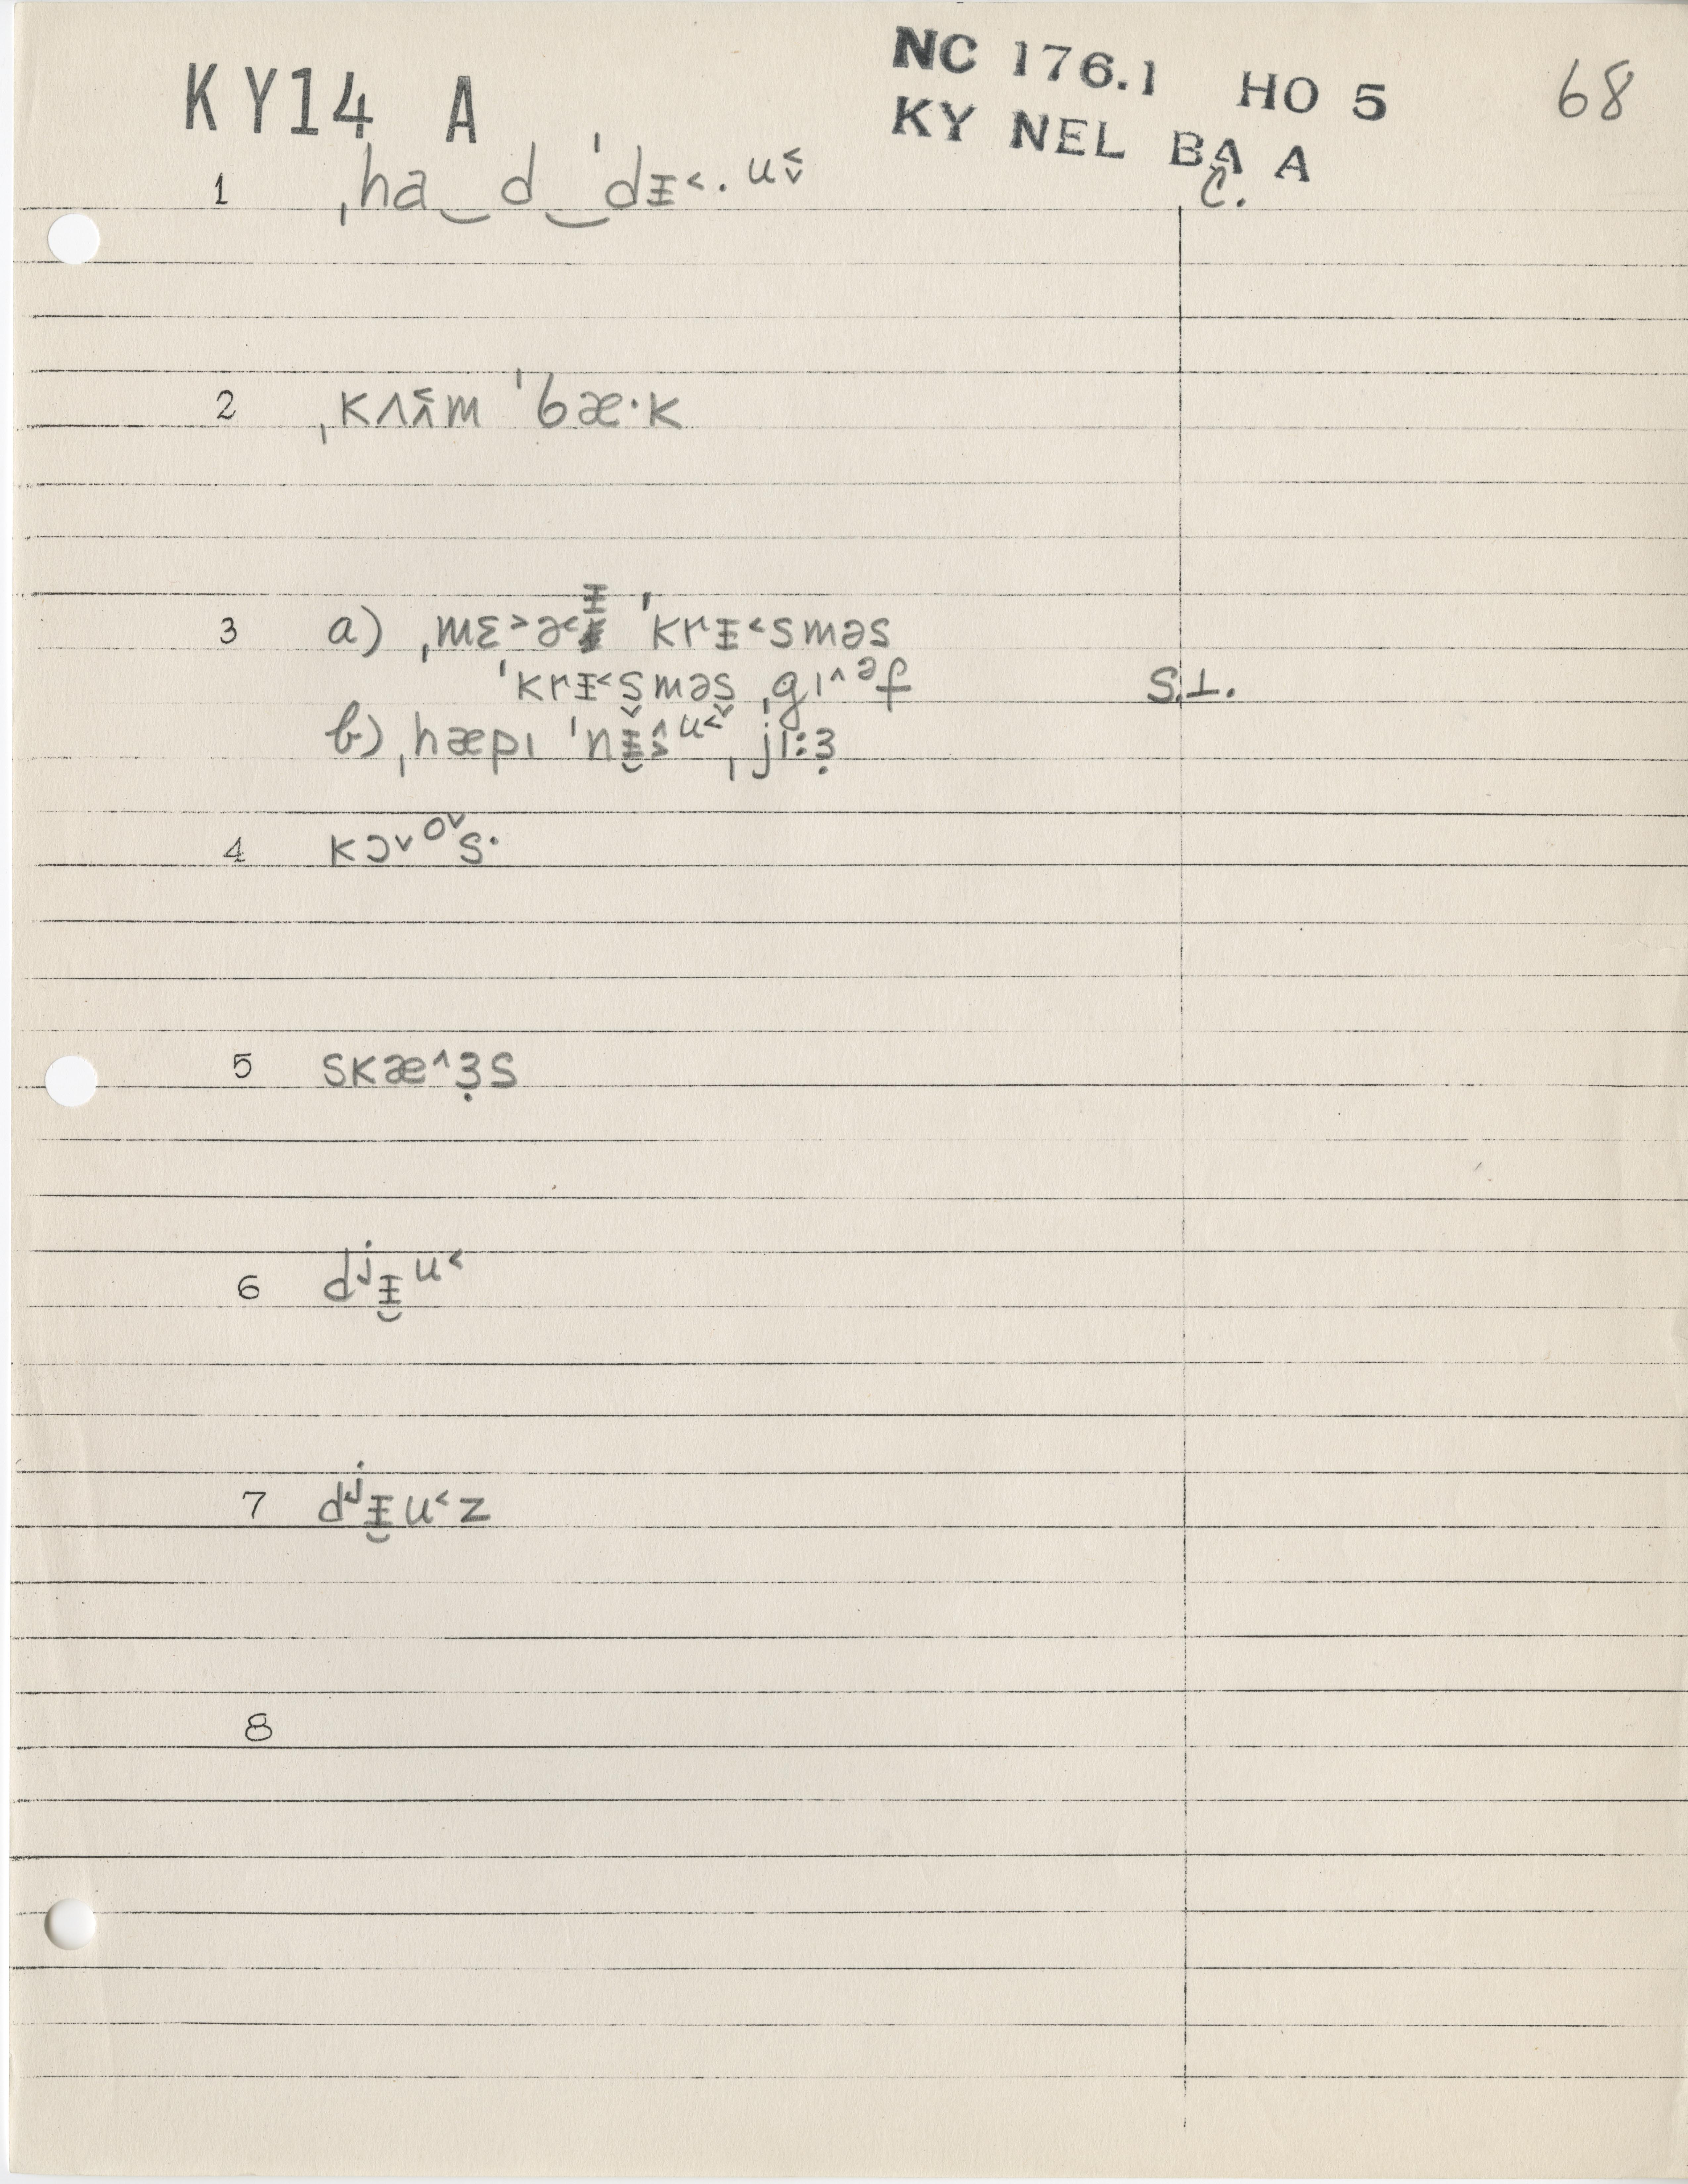 KY14 A
NC 176.1 HO 5
KY NEL BA A
68
C.
1 ˌha‿d‿ˈdᵻ˂·ᵘ˂̬
2 ˌkʌʌ̃˂m ˈbæ·k
3 a) ˌmɛ˃ə˂ᵻ ˈkrᵻ˂sməs
ˈkrᵻ˂s̬məs̬ ˌgɪ˄ᵊf S.⊥.
b) ˌhæpɪ ˈnᵻ̮s̭ᵘ˂ ˌji:ɜ̣
4 kɔ˅ᵒ˅s·
5 skæ˄ɜ̣s
6 dʲᵻ̮ᵘ˂
7 dʲᵻ̮u˂z
8